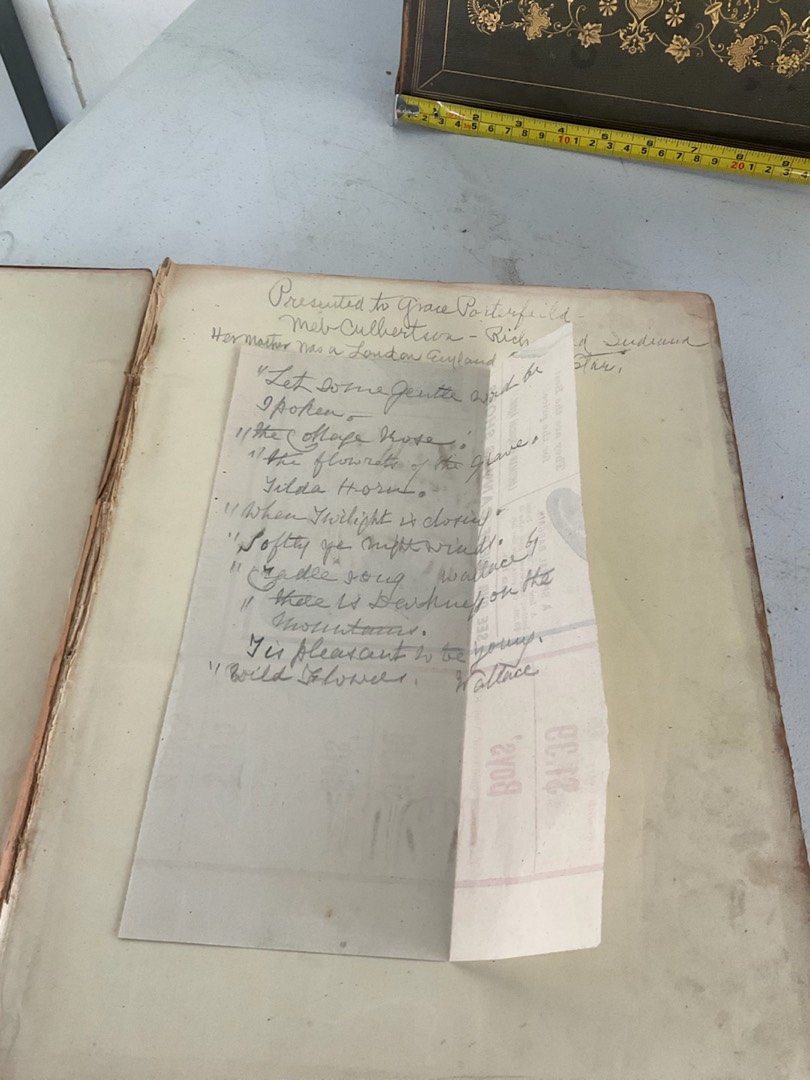 Presented to Grace Porterfeild -
Meb Culbertson - Rich d Indiana
Her Mother was a London England Star.
"Let some gentle word be
Spoken.
"The Cottage Rose."
"The flowrets of the Grave.
Tilda Horn.
"When Twilight is closing.
"Softly ye night winds.
"Cradle song Wallace
"There is Darkness on the
Mountains.
Tis pleasant to be young.
"Wild Flowers. Wallace
Boys'
$1.39